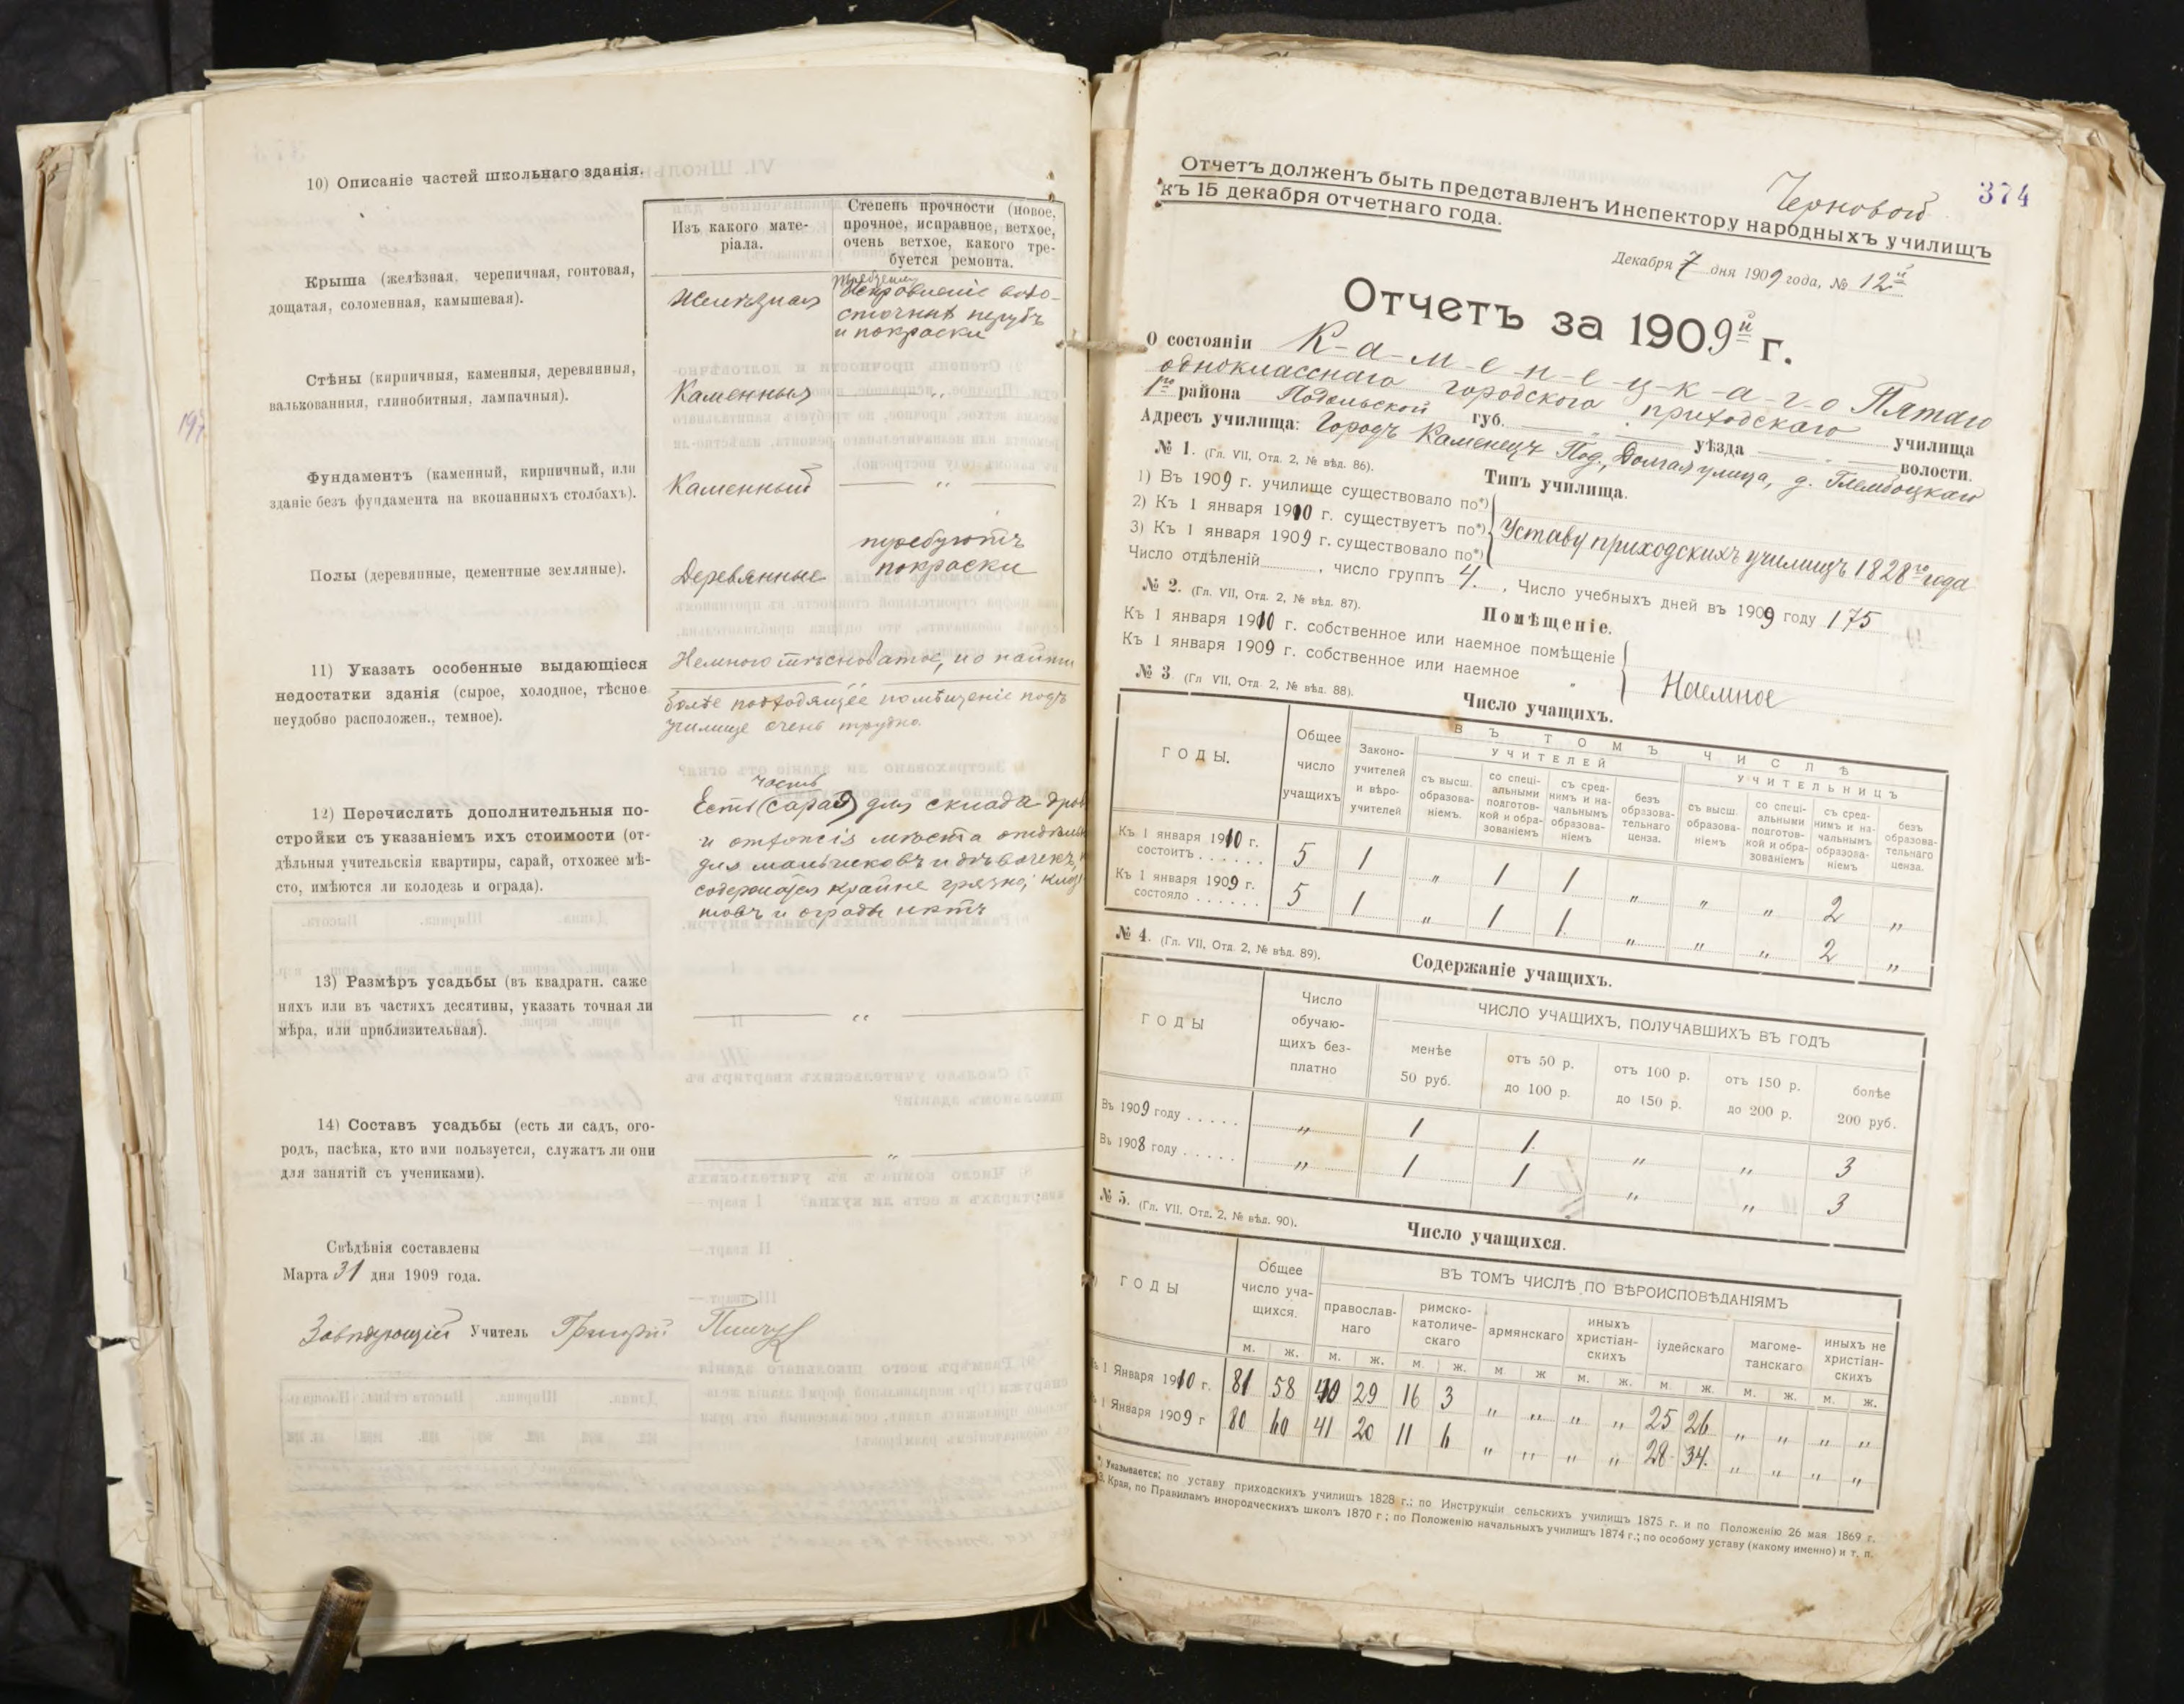 10) Описаніе частей школьнаго зданія.
Изъ какого мате-
ріала.
Степень прочности (новое,
прочное, исправное, ветхое,
очень ветхое, какого тре-
буется ремонта.
Крыша (желѣзная, черепичная, гонтовая,
дощатая, соломенная, камышевая).
Желѣзная
требуетъ
исправленіе водо-
сточныхъ
и покраски
Стѣны (кирпичныя, каменныя, деревянныя,
валькованныя, глинобитныя, лампачныя).
Каменныя
„
Фундаментъ (каменный, кирпичный, или
зданіе безъ фундамента на вкопанныхъ столбахъ).
Каменный
„
Полы (деревянные, цементные земляные).
Деревянные
требуютъ
покраски
11) Указать особенные выдающіеся
недостатки зданія (сырое, холодное, тѣсное
неудобно расположен., темное).
Немного тѣсноватое, но найти
болѣе подходящее помѣщеніе подъ
училище очень трудно.
12) Перечислить дополнительныя по-
стройки съ указаніемъ ихъ стоимости (от-
дѣльныя учительскія квартиры, сарай, отхожее мѣ-
сто, имѣются ли колодезь и ограда).
часть
Есть (сарая) для склада дров
и отхожія мѣста отдѣльн
для мальчиковъ и дѣвочекъ,
содержатся крайне грязно;
и ограды нѣтъ
13) Размѣръ усадьбы (въ квадратн. саже
няхъ или въ частяхъ десятины, указать точная ли
мѣра, или приблизительная).
„
14) Составъ усадьбы (есть ли садъ, ого-
родъ, пасѣка, кто ими пользуется, служатъ ли они
для занятій съ учениками).
„
Свѣдѣнія составлены
Марта 31 дня 1909 года.
Завѣдующій Учитель Григорій
Черновой
374
Отчетъ долженъ быть представленъ Инспектору народныхъ училищъ
къ 15 декабря отчетнаго года.
Декабря 7 дня 1909 года, № 12й
Отчетъ за 1909й г.
О состояніи К-а-м-е-н-е-ц-к-а-г-о Пятаго
одноклассного городского приходского училища
1го района Подольской губ. „ уѣзда „ волости.
Адресъ училища: Городъ Каменецъ Под., Долгая улица, д. Глембоцкой
№ 1. (Гл. VII, Отд. 2, № вѣд. 86).
Типъ училища.
1) Въ 1909 г. училище существовало по*)
2) Къ 1 января 1910 г. существуетъ по*)
3) Къ 1 января 1909 г. существовало по*)
Уставу приходскихъ училищъ 1828го года
Число отдѣленій , число группъ 4. , Число учебныхъ дней въ 1909 году 175
№ 2. (Гл. VII, Отд. 2, № вѣд. 87).
Помѣщеніе.
Къ 1 января 1910 г. собственное или наемное помѣщеніе
Къ 1 января 1909 г. собственное или наемное „
Наемное
№ 3 (Гл VII, Отд. 2, № вѣд. 88).
Число учащихъ.
ГОДЫ.
Общее
число
учащихъ
ВЪ ТОМЪ ЧИСЛѢ
Законо-
учителей
и вѣро-
учителей
УЧИТЕЛЕЙ
УЧИТЕЛЬНИЦЪ
съ высш.
образова-
ніемъ.
со спеці-
альными
подготов-
кой и обра-
зованіемъ
съ сред-
нимъ и на-
чальнымъ
образова-
ніемъ
безъ
образова-
тельнаго
ценза.
съ высш
образова-
ніемъ
со спеці-
альными
подготов-
кой и обра-
зованіемъ
съ сред-
нимъ и на-
чальнымъ
образова-
ніемъ
безъ
образова-
тельнаго
ценза.
Къ 1 января 1910 г.
состоитъ . . . . . . 5 1 „ 1 1 „ „ „ 2 „
Къ 1 января 1909 г.
состояло . . . . . . 5 1 „ 1 1. „ „ „ 2 „
№ 4. (Гл. VII, Отд. 2, № вѣд. 89).
Содержаніе учащихъ.
ГОДЫ
Число
обучаю-
щихъ без-
платно
ЧИСЛО УЧАЩИХЪ, ПОЛУЧАВШИХЪ ВЪ ГОДЪ
менѣе
50 руб.
отъ 50 р.
до 100 р.
отъ 100 р.
до 150 р.
отъ 150 р.
до 200 р.
болѣе
200 руб.
Въ 1909 году . . . . . „ 1 1. „ „ 3
Въ 1908 году . . . . . „ 1 1 „ „ 3
№ 5. (Гл. VII, Отд. 2, № вѣд. 90).
Число учащихся.
ГОДЫ
Общее
число уча-
щихся.
ВЪ ТОМЪ ЧИСЛѢ ПО ВѢРОИСПОВѢДАНІЯМЪ
православ-
наго
римско-
католиче-
скаго
армянскаго
иныхъ
христіан-
скихъ
іудейскаго
магоме-
танскаго
иныхъ не
христіан-
скихъ
м. ж. м. ж. м. ж. м. ж м. ж. м. ж. м. ж. м. ж.
1 Января 1910 г. 81 58 40 29 16 3 „ „ „ „ 25 26 „ „ „ „
1 Января 1909 г 80 60 41 20 11 6 „ „ „ „ 28. 34. „ „ „ „
*) Указывается: по уставу приходскихъ училищъ 1828 г.; по Инструкціи сельскихъ училищъ 1875 г. и по Положенію 26 мая 1869 г.
З. Края, по Правиламъ инородческихъ школъ 1870 г; по Положенію начальныхъ училищъ 1874 г.; по особому уставу (какому именно) и т. п.